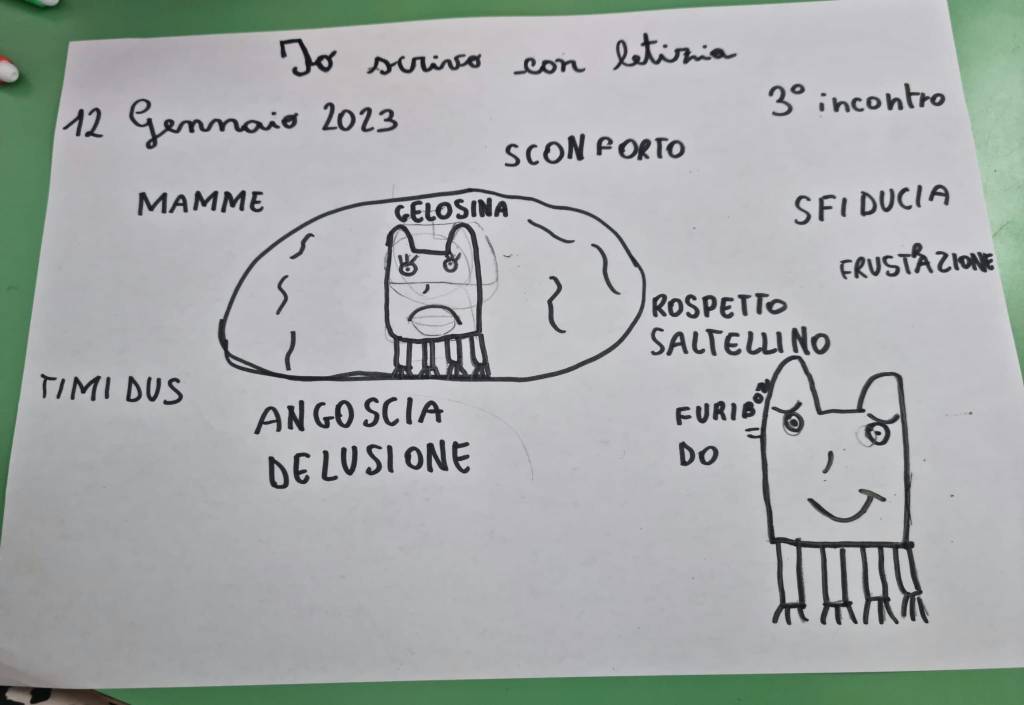 Io scrivo con letizia
12 Gennaio 2023
3° incontro
SCONFORTO
MAMME
GELOSINA
SFIDUCIA
FRUSTRAZIONE
ROSPETTO
SALTELLINO
TIMIDUS
ANGOSCIA
DELUSIONE
FURIBON=
DO